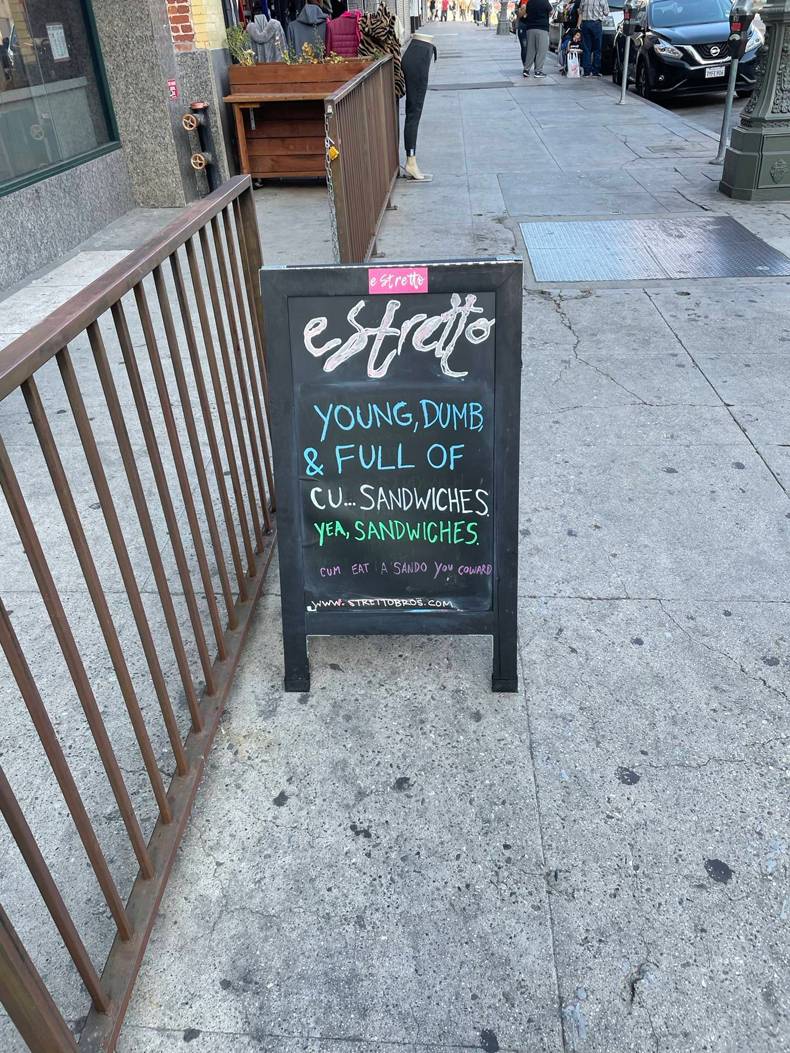 e stretto
e stretto
YOUNG, DUMB,
& FULL OF
CU... SANDWICHES.
YEA, SANDWICHES.
CUM EAT A SANDO YOU COWARD
WWW.STRETTOBROS.COM